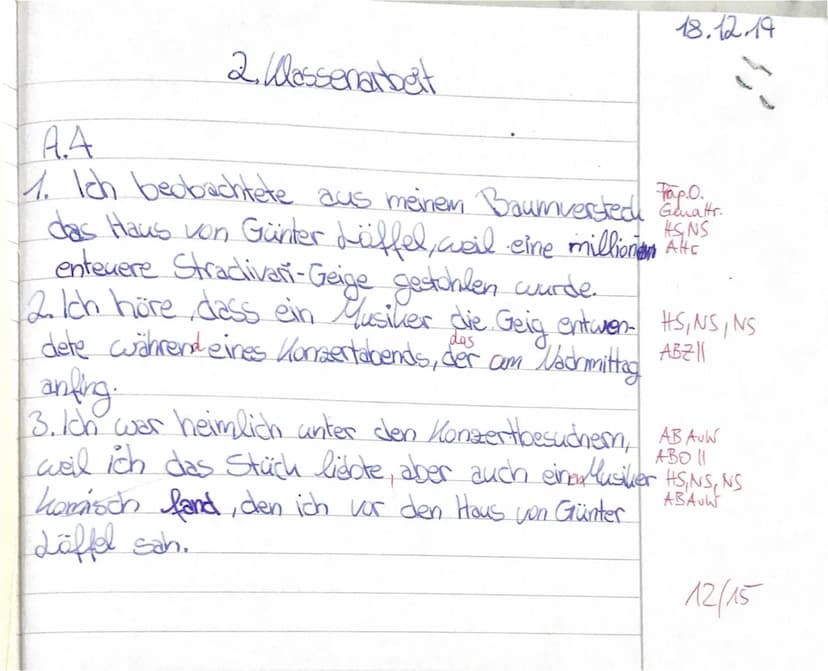 18.12.19
2. Klassenarbeit
A.4
1. Ich beobachtete aus meinem Baumversteck
Präp.O.
Genattr.
das Haus von Günter Löffel, weil eine millionen
HS, NS
AHC
enteuere Stradivari-Geige gestohlen wurde.
2. Ich höre, dass ein Musiker die Geig entwen-
HS, NS, NS
das
dete während eines Konzertabends, der am Nachmittag
ABZ ||
anfing.
3. Ich war heimlich unter den Konzertbesuchern,
AB AuW
ABO ||
weil ich das Stück liebte, aber auch einen Musiker
HS, NS, NS
komisch fand, den ich vor den Haus von Günter
ABAuW
Löffel sah.
12/15